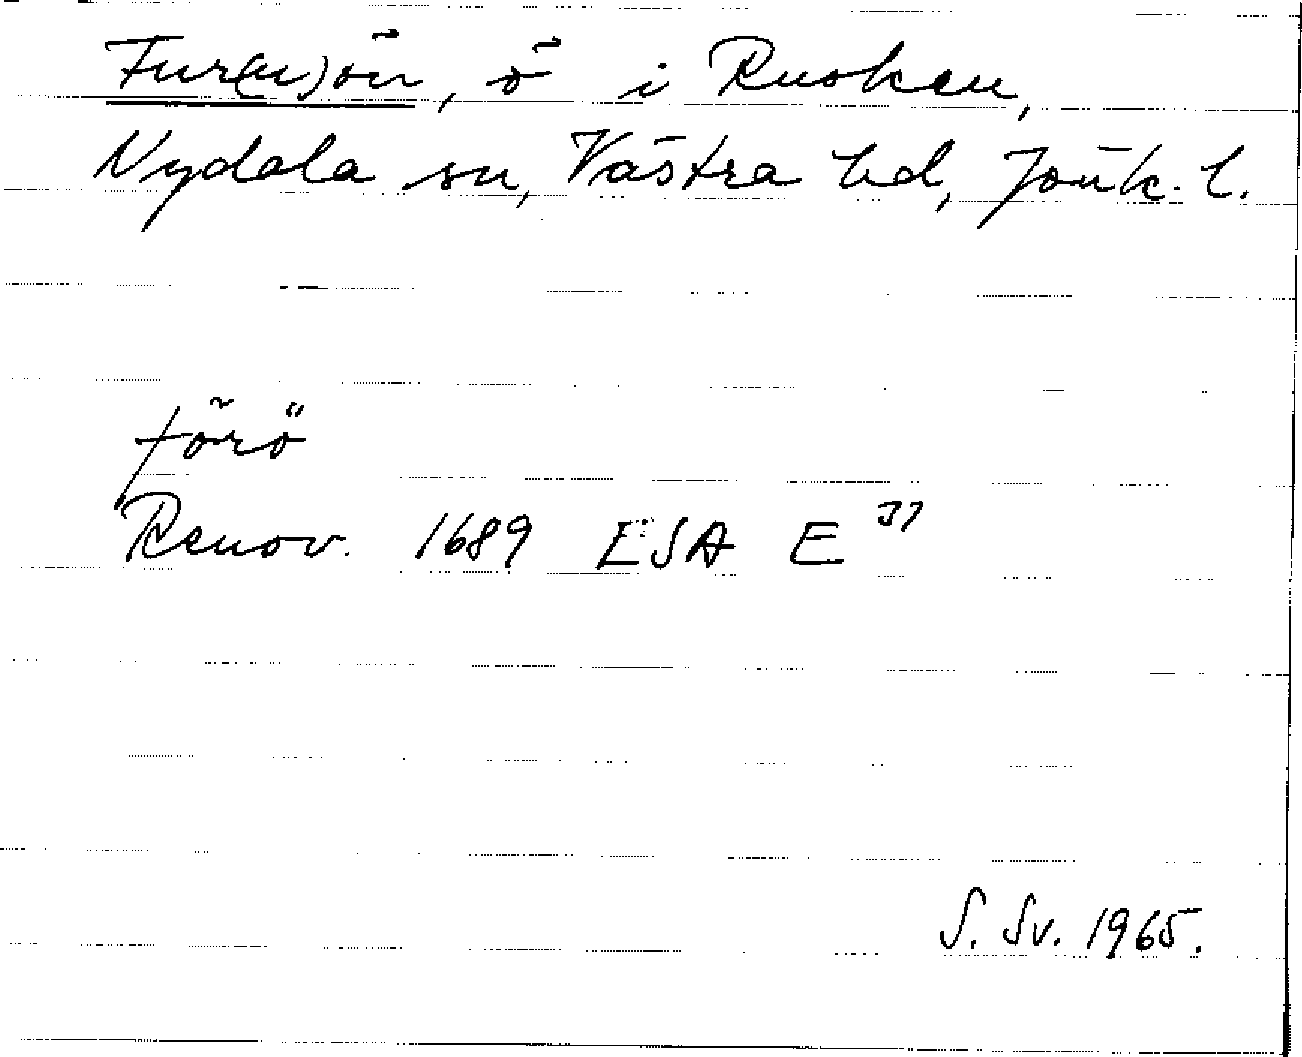 Fur(u)ön, ö i Rusken,
Nydala sn, Västra hd, Jönk. l.
förö
Renov. 1689 LSA E 37
S. Sv. 1965.